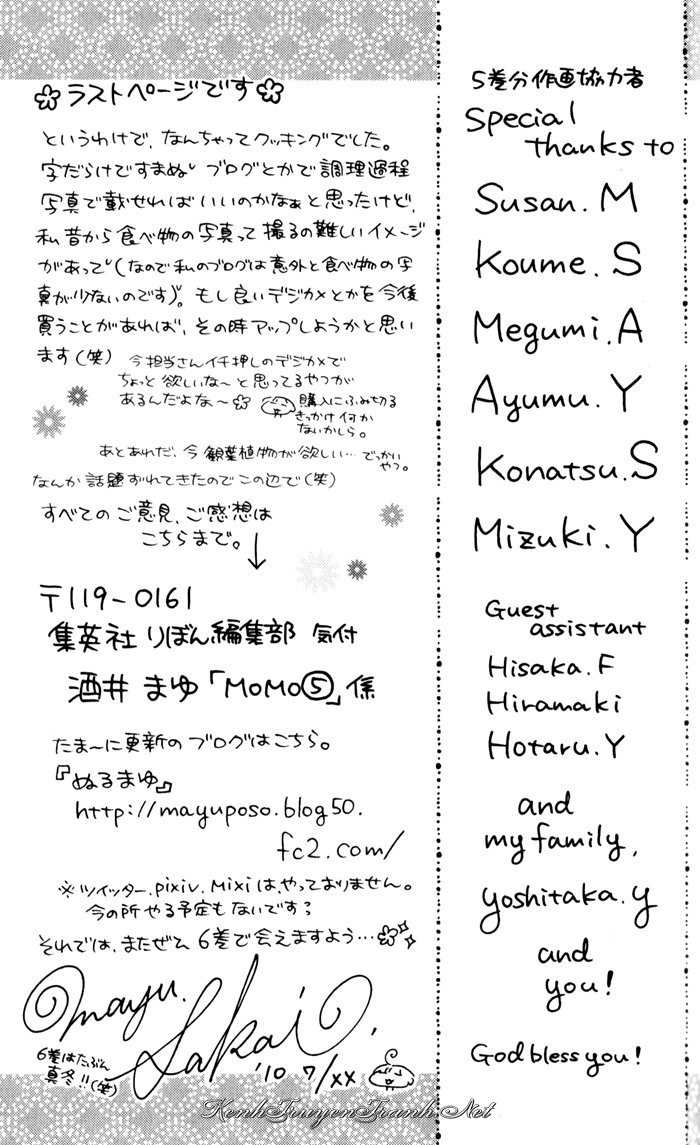 ラストページです
というわけで、なんちゃってクッキングでした。
字だらけですまぬ ブログとかで調理過程
写真で載せればいいのかなぁと思ったけど、
私昔から食べ物の写真って撮るの難しいイメージ
があって(なので私のブログは意外と食べ物の写
真が少ないのです)。もし良いデジカメとかを今後
買うことがあれば、その時アップしようかと思い
ます(笑)
今担当さんイチ押しのデジカメで
ちょっと欲しいな〜と思ってるやつが
あるんだよな〜
購入にふみ切る
きっかけ何か
ないかしら。
あとあれだ、今観葉植物が欲しい…でっかい
やつ。
なんか話題ずれてきたのでこの辺で(笑)
すべてのご意見、ご感想は
こちらまで。↓
〒119-0161
集英社 りぼん編集部 気付
酒井 まゆ「MOMO⑤」係
たま〜に更新のブログはこちら。
『ぬるまゆ』
http://mayuposo.blog50.
fc2.com/
※ツイッター、pixiv、Mixiは、やっておりません。
今の所やる予定もないです?
それでは、またぜひ 6巻で会えますよう…
mayu.
Sakai.
'10 7/XX
6巻はたぶん
真冬!!(笑)
5巻分作画協力者
Special
thanks to
Susan. M
Koume. S
Megumi. A
Ayumu. Y
Konatsu. S
Mizuki. Y
Guest
assistant
Hisaka. F
Hiramaki
Hotaru. Y
and
my family,
yoshitaka. y
and
you!
God bless you!
KenhTruyenTranh.Net